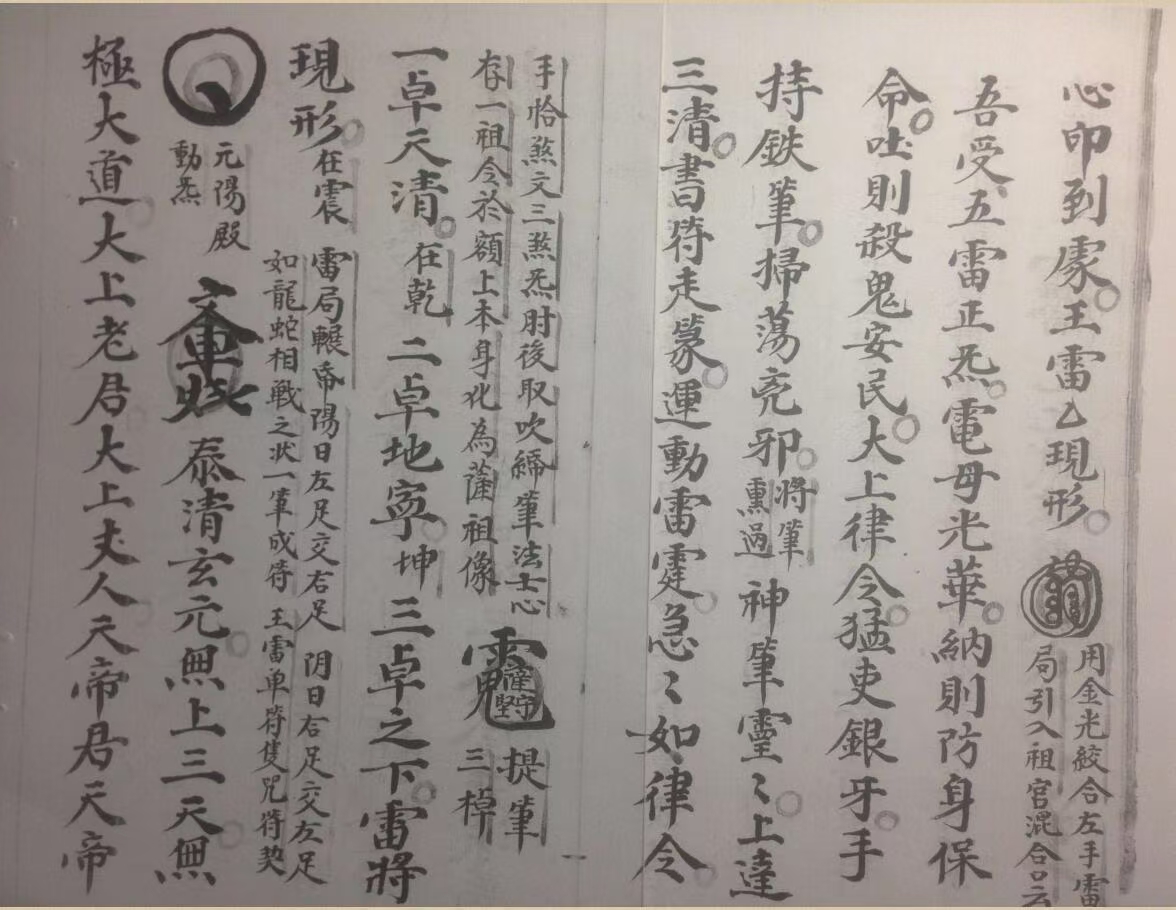 心印到處王雷乙現形
用金光絞合左手雷
局引入祖宫混合口云
吾受五雷正炁電母光華納則防身保
命吐則殺鬼安民大上律令猛吏銀牙手
持鉄筆掃蕩兇邪
將筆
熏過
神筆靈〻上達
三清書符走篆運動雷霆急〻如律令
手恰煞文三煞炁肘後取吹締筆法士心
存一祖令於額上本身化為薩祖像
提筆
三棹
一卓天清在乾二卓地寧坤三卓之下雷將
現形在震
雷局輾帋陽日左足交右足 阴日右足交左足
如龍蛇相戰之状一筆成符 王雷单符隻咒符契
元陽殿
動炁
泰清玄元無上三天無
極大道大上老君大上丈人天帝君天帝